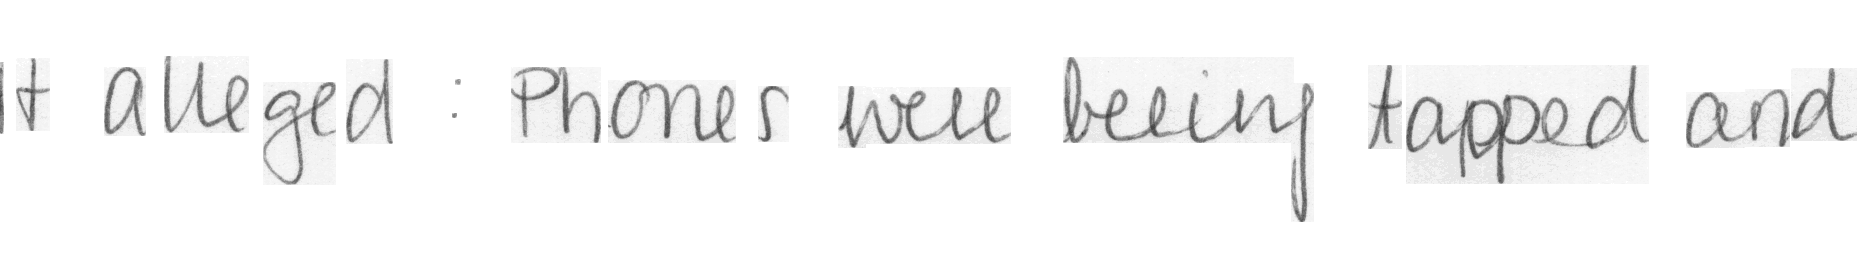 It alleged : Phones were beeing tapped and